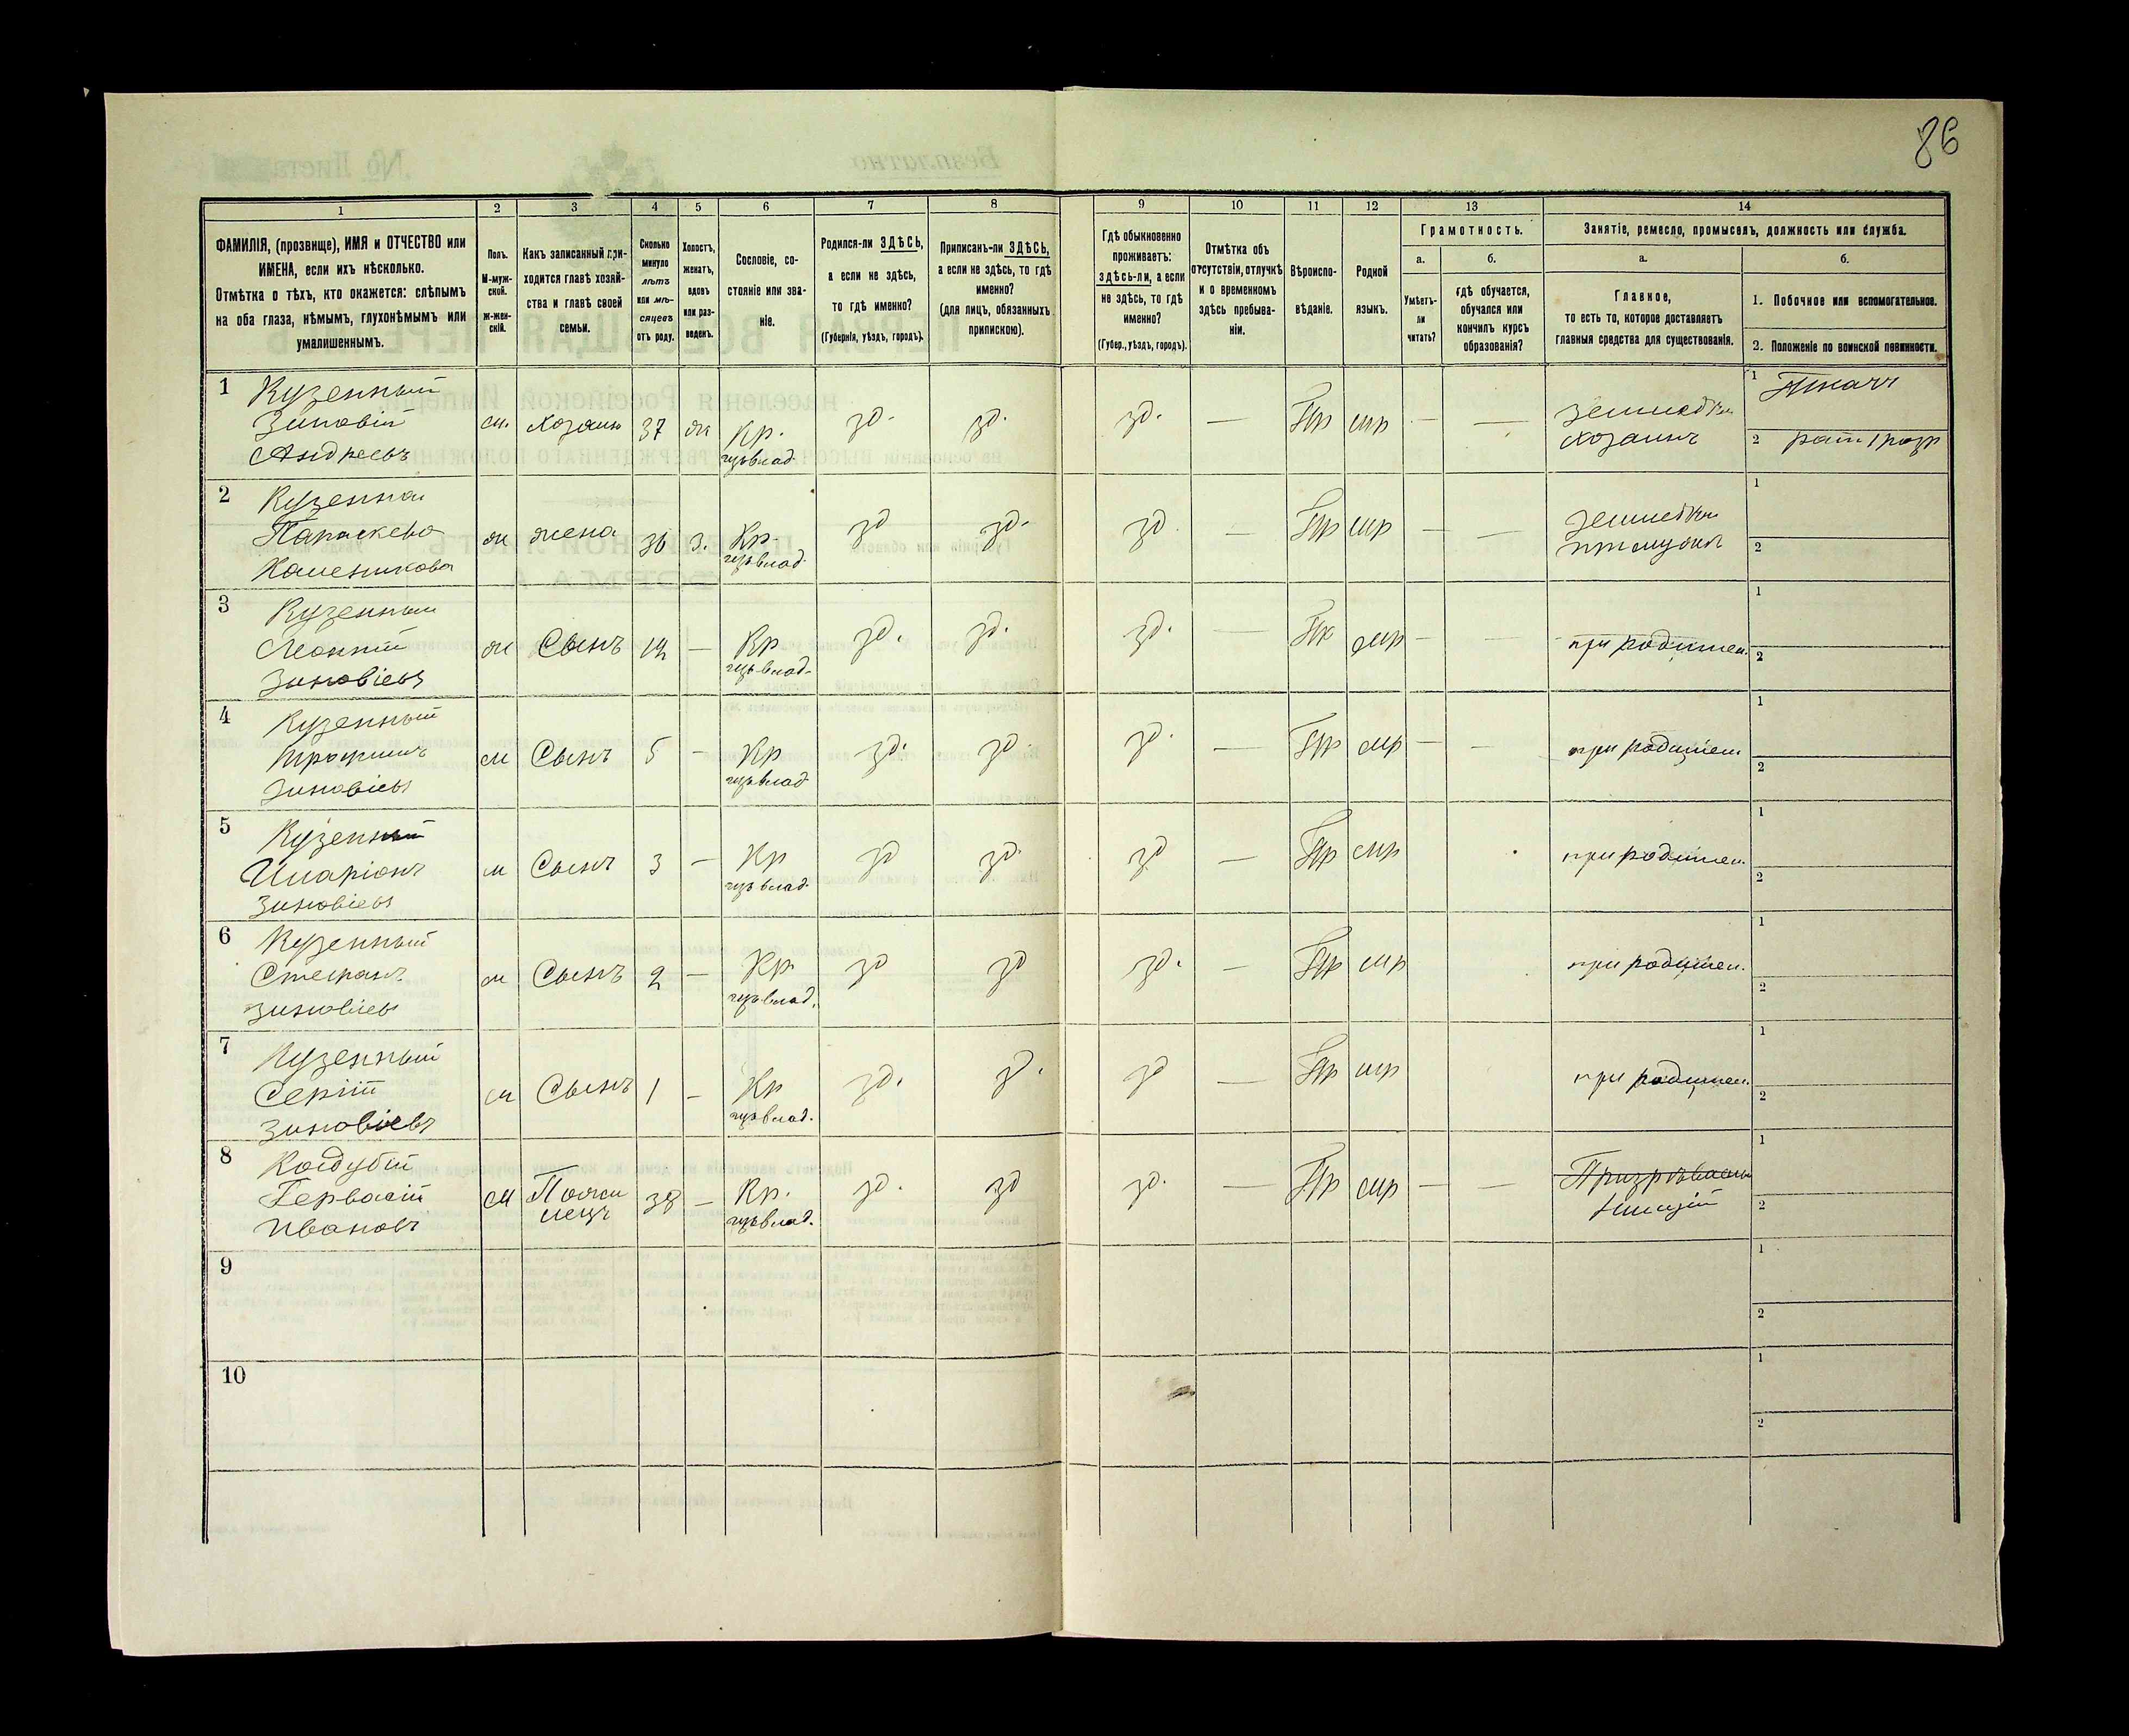 86
1
2
3
4
5
6
7
8
9
10
11
12
13
14
ФАМИЛІЯ, (прозвище), ИМЯ и ОТЧЕСТВО или
ИМЕНА, если ихъ нѣсколько.
Отмѣтка о тѣхъ, кто окажется: слѣпымъ
на оба глаза, нѣмымъ, глухонѣмымъ или
умалишеннымъ.
Полъ.
М-муж-
ской.
ж-жен-
скій.
Какъ записанный при-
ходится главѣ хозяй-
ства и главѣ своей
семьи.
Сколько
минуло
лѣтъ
или мѣ-
сяцевъ
отъ роду.
Холостъ,
женатъ,
вдовъ
или раз-
веденъ.
Сословіе, со-
стояніе или зва-
ніе.
Родился-ли ЗДѢСЬ,
а если не здѣсь,
то гдѣ именно?
(Губернія, уѣздъ, городъ).
Приписанъ-ли ЗДѢСЬ,
а если не здѣсь, то гдѣ
именно?
(для лицъ, обязанныхъ
припискою).
Гдѣ обыкновенно
проживаетъ:
ЗДѢСЬ-ЛИ, а если
не здѣсь, то гдѣ
именно?
(Губер., уѣздъ, городъ).
Отмѣтка объ
отсутствіи, отлучкѣ
и о временномъ
здѣсь пребыва-
ніи.
Вѣроиспо-
вѣданіе.
Родной
языкъ.
Грамотность.
а.
Умѣетъ-
ли
читать?
б.
гдѣ обучается,
обучался или
кончилъ курсъ
образованія?
Занятіе, ремесло, промыселъ, должность или служба.
а.
Главное,
то есть то, которое доставляетъ
главныя средства для существованія.
б.
1. Побочное или вспомогательное.
2. Положеніе по воинской повинности.
1
Кузенный
Зиновій
Андреевъ
м.
хозяин
37
ж
Кр.
влад.
зд.
зд.
зд.
—
Пр
мр
—
—
хозаинъ
1 Ткачъ
2 рат 1 разр
2
Кузенная
Параскева
ж
жена
36
з.
Кр.
влад.
зд
зд.
зд
—
Пр
мр
—
—
1
2
3
Кузенный
Леонтій
Зиновіевъ
м
Сынъ
12
—
Кр
влад.
зд.
зд.
зд.
—
мр
—
—
при родител.
1
2
4
Кузенный
Трофимъ
Зиновіевъ
м
Сынъ
5
—
Кр
влад
зд.
зд.
зд.
—
Пр
мр
—
—
при родител
1
2
5
Кузенный
Иларіонъ
Зиновіевъ
м
Сынъ
3
—
Кр
влад.
зд
зд.
зд
—
Пр
мр
при родител.
1
2
6
Кузенный
Стефанъ
Зиновіевъ
м
Сынъ
2
—
Кр.
влад.
зд
зд
зд.
—
Пр
мр
при родител.
1
2
7
Кузенный
Сергій
Зиновіевъ
м
Сынъ
1
—
Кр
влад.
зд.
зд.
зд
—
Пр
мр
при родител.
1
2
8
Гервасій
Ивановъ
м
38
—
Кр.
влад.
зд.
зд
зд.
—
Пр
мр
—
—
Нищій
1
2
9
1
2
10
1
2